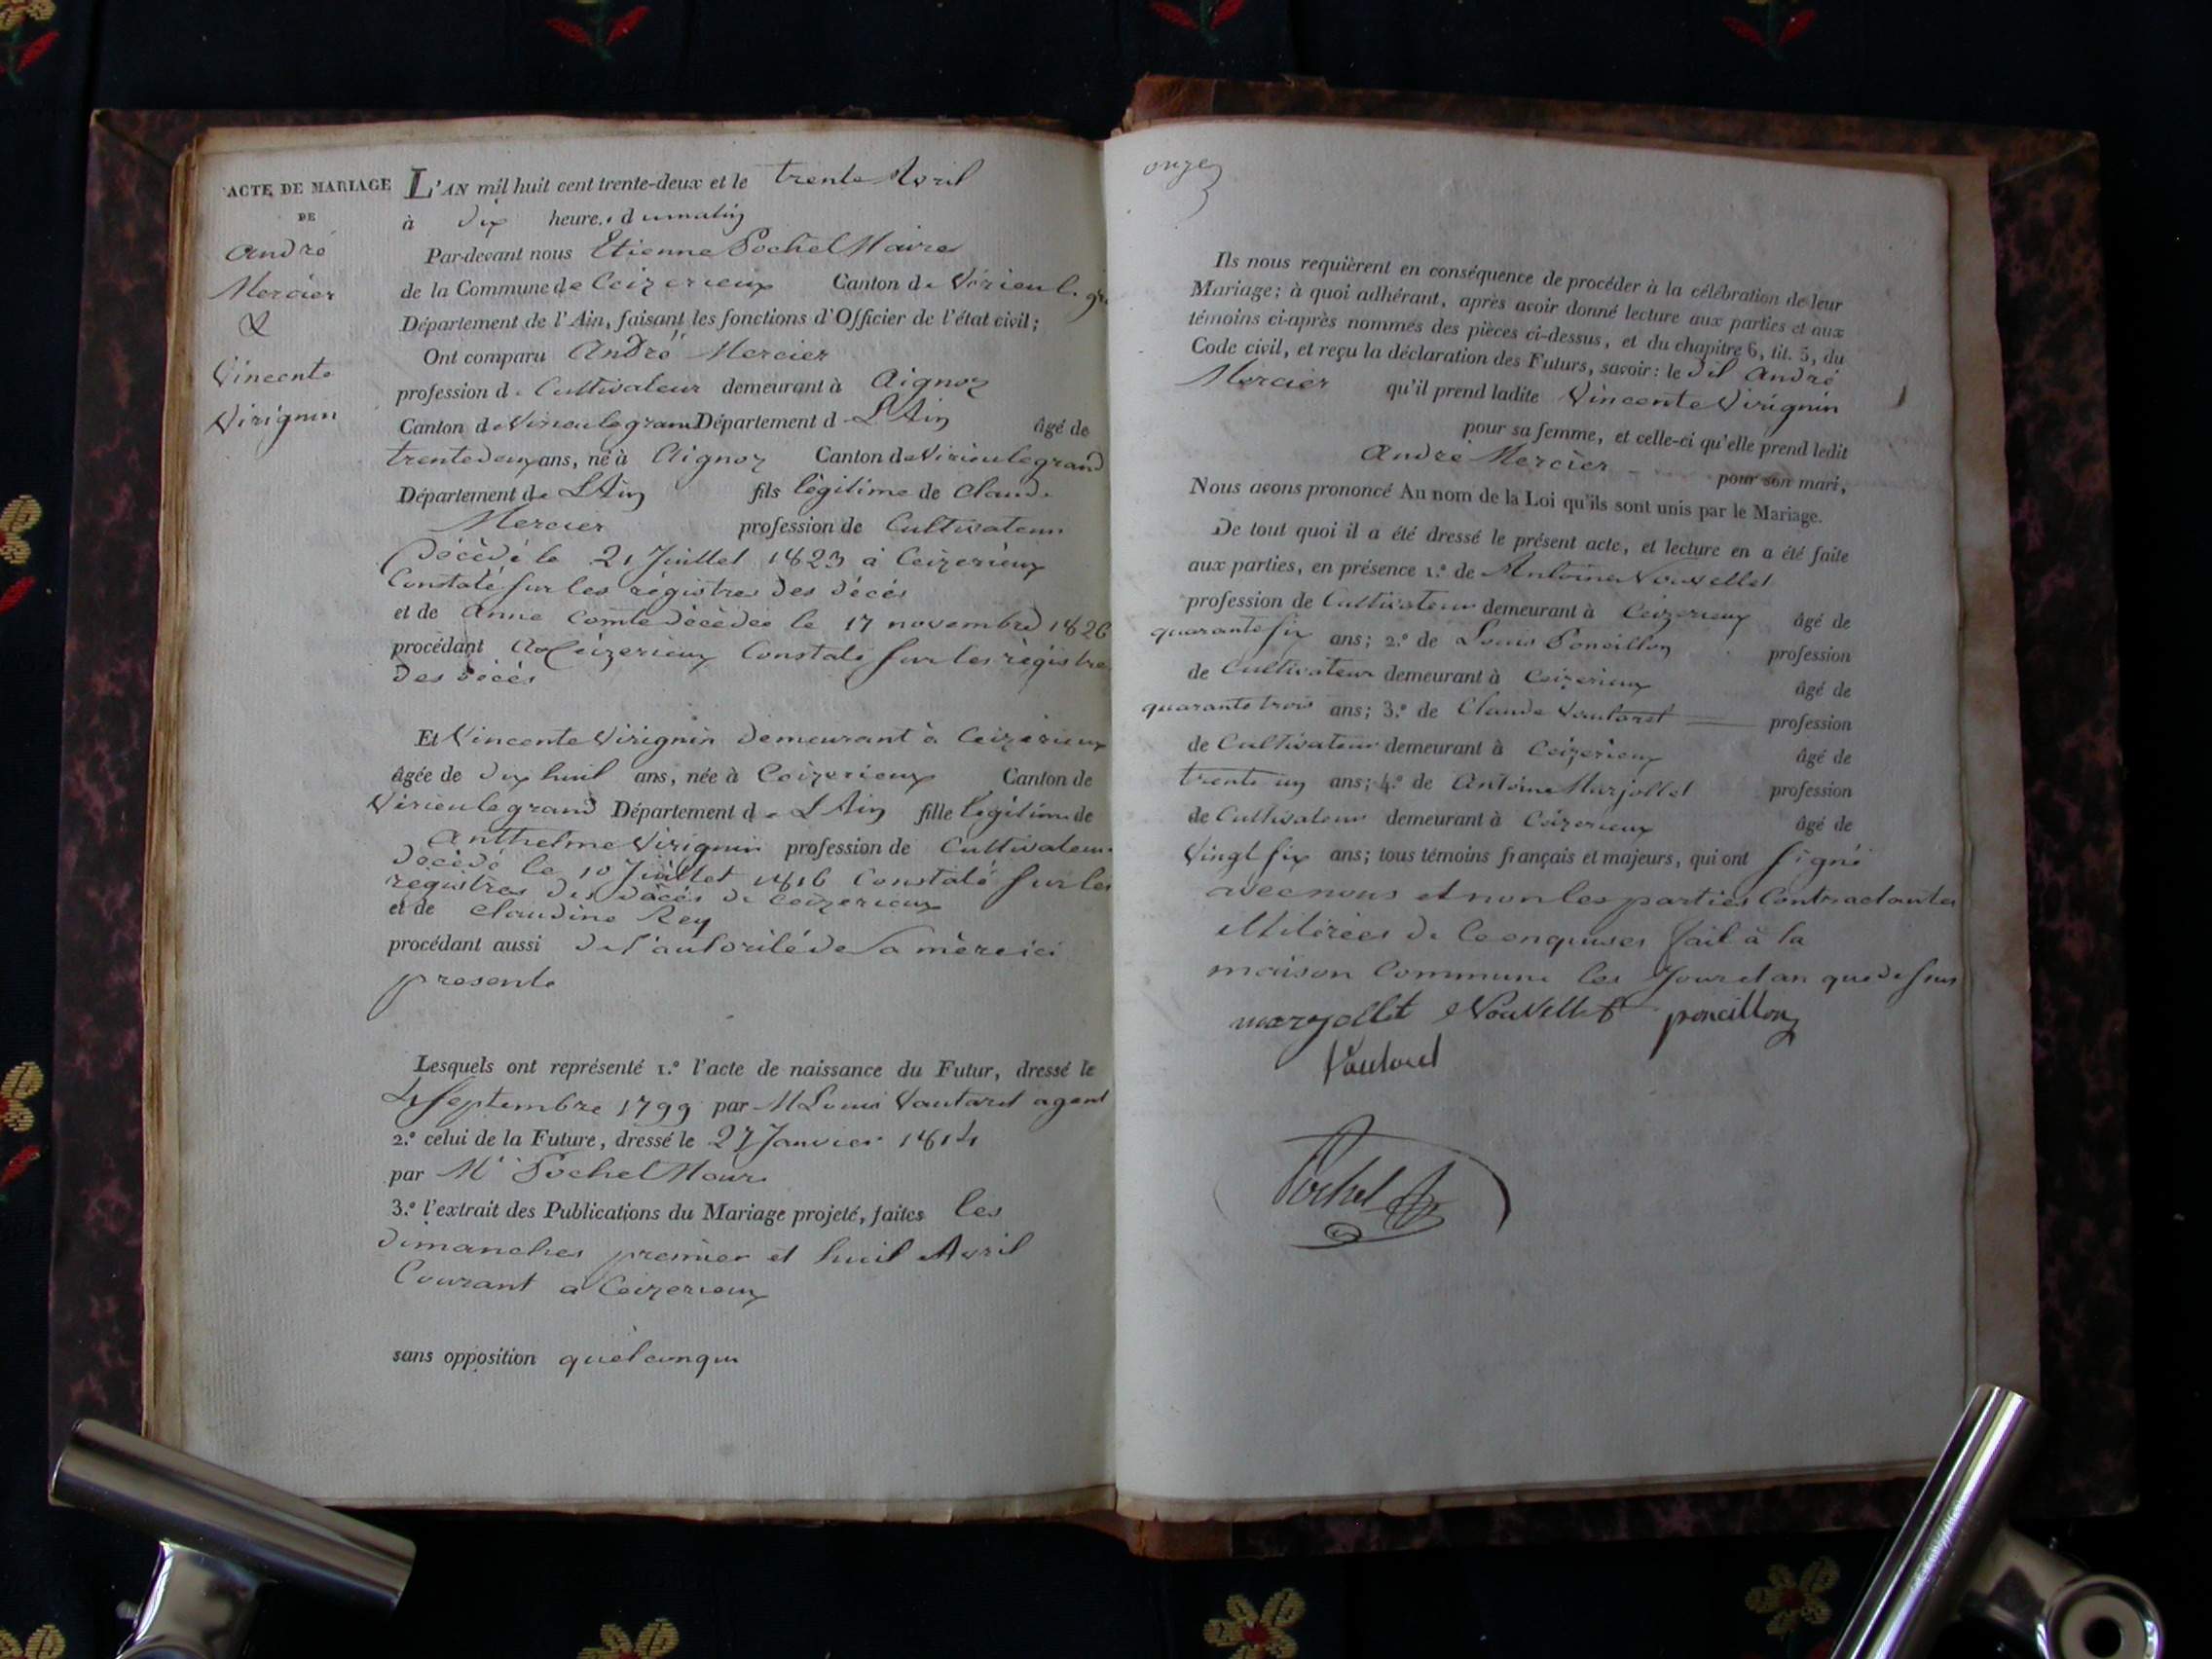 ACTE DE MARIAGE
DE
André
Mercier
&
Vincente
Virignin
L'AN mil huit cent trente-deux et le trente Avril
à dix heure s du matin
Par-devant nous Etienne Pochet Maire
de la Commune de Ceizerieux Canton de Virieu le gr
Département de l'Ain, faisant les fonctions d'Officier de l'état civil;
Ont comparu André Mercier
profession de Cultivateur demeurant à Aignoz
Canton de Virieu le grand Département de L'Ain âgé de
trente deux ans, né à Aignoz Canton de Virieu le grand
Département de L'Ain fils légitime de Claude
Mercier profession de Cultivateur
Décédé le 21 Juillet 1823 à Ceizerieux
Constaté sur les régistres des décés
et de Anne Comte décédée le 17 novembre 1826
procédant a Ceizerieux Constaté sur les régistre
des décés
Et Vincente Virignin demeurant à Ceizerieux
âgée de dix huit ans, née à Ceizerieux Canton de
Virieu le grand Département de L'Ain fille légitime de
Anthelme Virignin profession de Cultivateur
décédé le 10 Juillet 1816 Constaté sur les
régistres des décés de Ceizerieux
et de Claudine Rey
procédant aussi de l'autorité de sa mère ici
presente
Lesquels ont représenté 1.° l'acte de naissance du Futur, dressé le
4 Septembre 1799 par M Louis Vautaret agent
2.° celui de la Future, dressé le 27 Janvier 1814
par Mr Pochet Maire
3.° l'extrait des Publications du Mariage projeté, faites les
dimanches premier et huit Avril
Courant a Ceizerieux
sans opposition quelconque
onze
Ils nous requièrent en conséquence de procéder à la célébration de leur
Mariage; à quoi adhérant, après avoir donné lecture aux parties et aux
témoins ci-après nommés des pièces ci-dessus, et du chapitre 6, tit. 5, du
Code civil, et reçu la déclaration des Futurs, savoir: le dit André
Mercier qu'il prend ladite Vincente Virignin
pour sa femme, et celle-ci qu'elle prend ledit
André Mercier pour son mari,
Nous avons prononcé Au nom de la Loi qu'ils sont unis par le Mariage.
De tout quoi il a été dressé le présent acte, et lecture en a été faite
aux parties, en présence 1.° de Antoine Nouvellet
profession de Cultivateur demeurant à Ceizerieux âgé de
quarante six ans; 2.° de Louis Poncillon profession
de Cultivateur demeurant à Ceizerieux âgé de
quarante trois ans; 3.° de Claude Vautaret profession
de Cultivateur demeurant à Ceizerieux âgé de
trente un ans; 4.° de Antoine Marjollet profession
de Cultivateur demeurant à Ceizerieux âgé de
Vingt six ans; tous témoins français et majeurs, qui ont signé
avec nous et non les parties Contractantes
illitérées de ce enquises fait à la
maison Commune les Jour et an que dessus
marjollet Nouvellet poncillon
Vautaret
Pochet